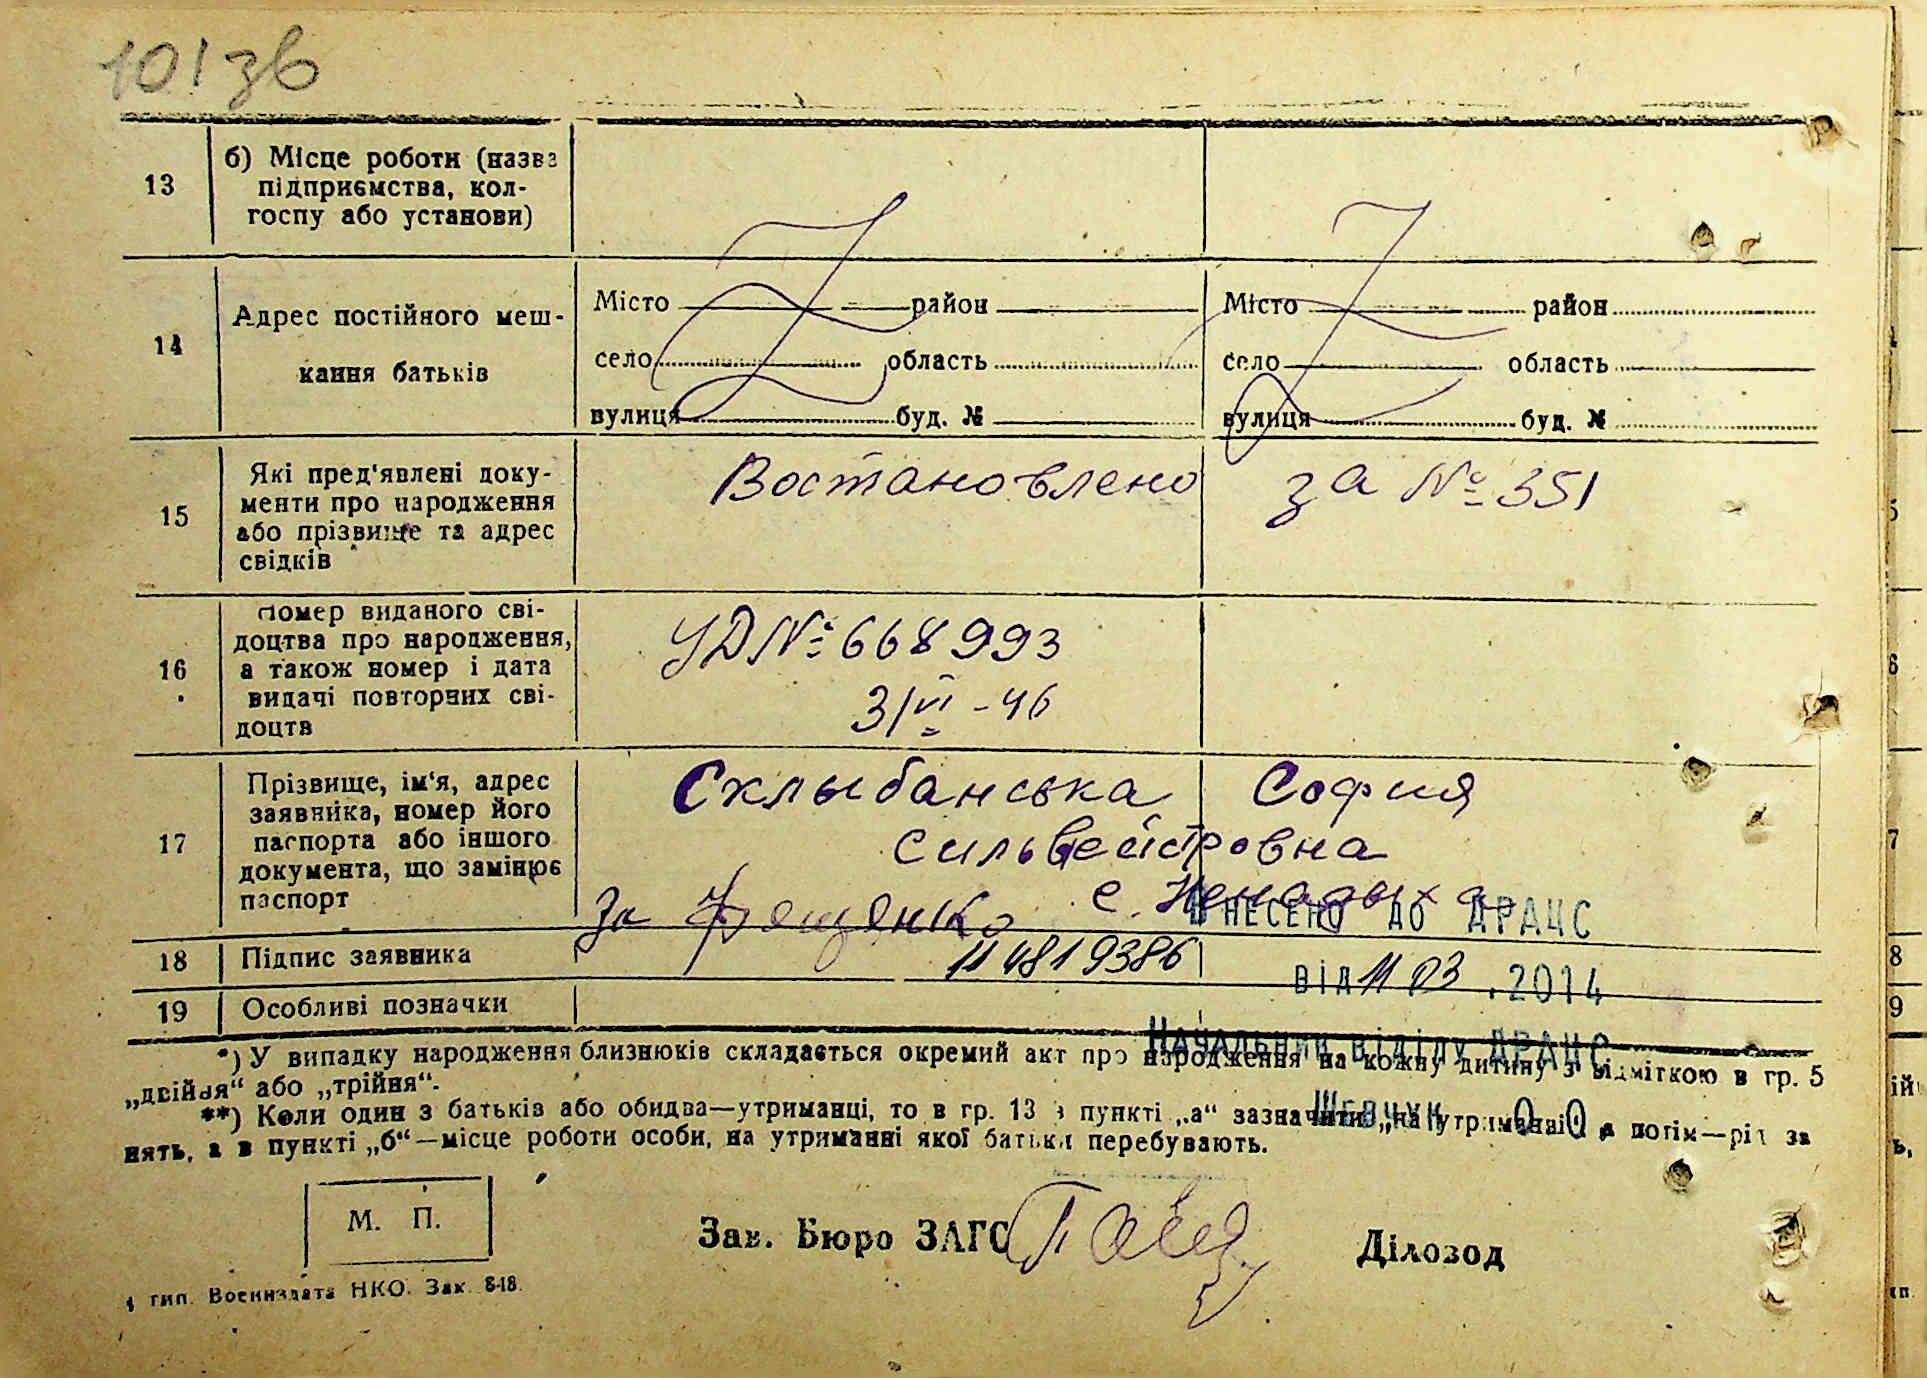 101 зв
13
б) Місце роботи (назва
підприємства, кол-
госпу або установи)
14
Адрес постійного меш-
кання батьків
Місто район
село область
вулиця буд. №
Місто район
село область
вулиця буд. №
15
Які пред'явлені доку-
менти про народження
або прізвище та адрес
свідків
Востановлено за № 351
16
Номер виданого сві-
доцтва про народження,
а також номер і дата
видачі повторних сві-
доцтв
УД № 668993
3/VI - 46
17
Прізвище, ім'я, адрес
заявника, номер його
паспорта або іншого
документа, що замінює
паспорт
Склыбанська София
Сильвейстровна
с. Ненадыха
За
18
Підпис заявника
114819386
19
Особливі позначки
ВНЕСЕНО ДО ДРАЦС
від 11 03 .2014
Начальник відділу ДРАЦС
Шевчук О.О.
*) У випадку народження близнюків складається окремий акт про народження на кожну дитину з відміткою в гр. 5
„двійня“ або „трійня“.
**) Коли один з батьків або обидва—утриманці, то в гр. 13 в пункті „а“ зазначити „на утриманні“, а потім—рід за
нять, а в пункті „б“—місце роботи особи, на утриманні якої батьки перебувають.
М. П.
Зав. Бюро ЗАГС
Діловод
тип. Воениздата НКО. Зак. 8-18.